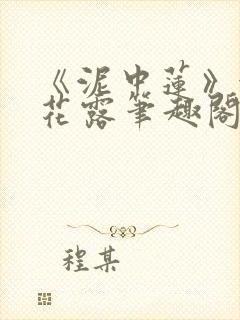 《泥中莲》
花露笔趣阁
程某